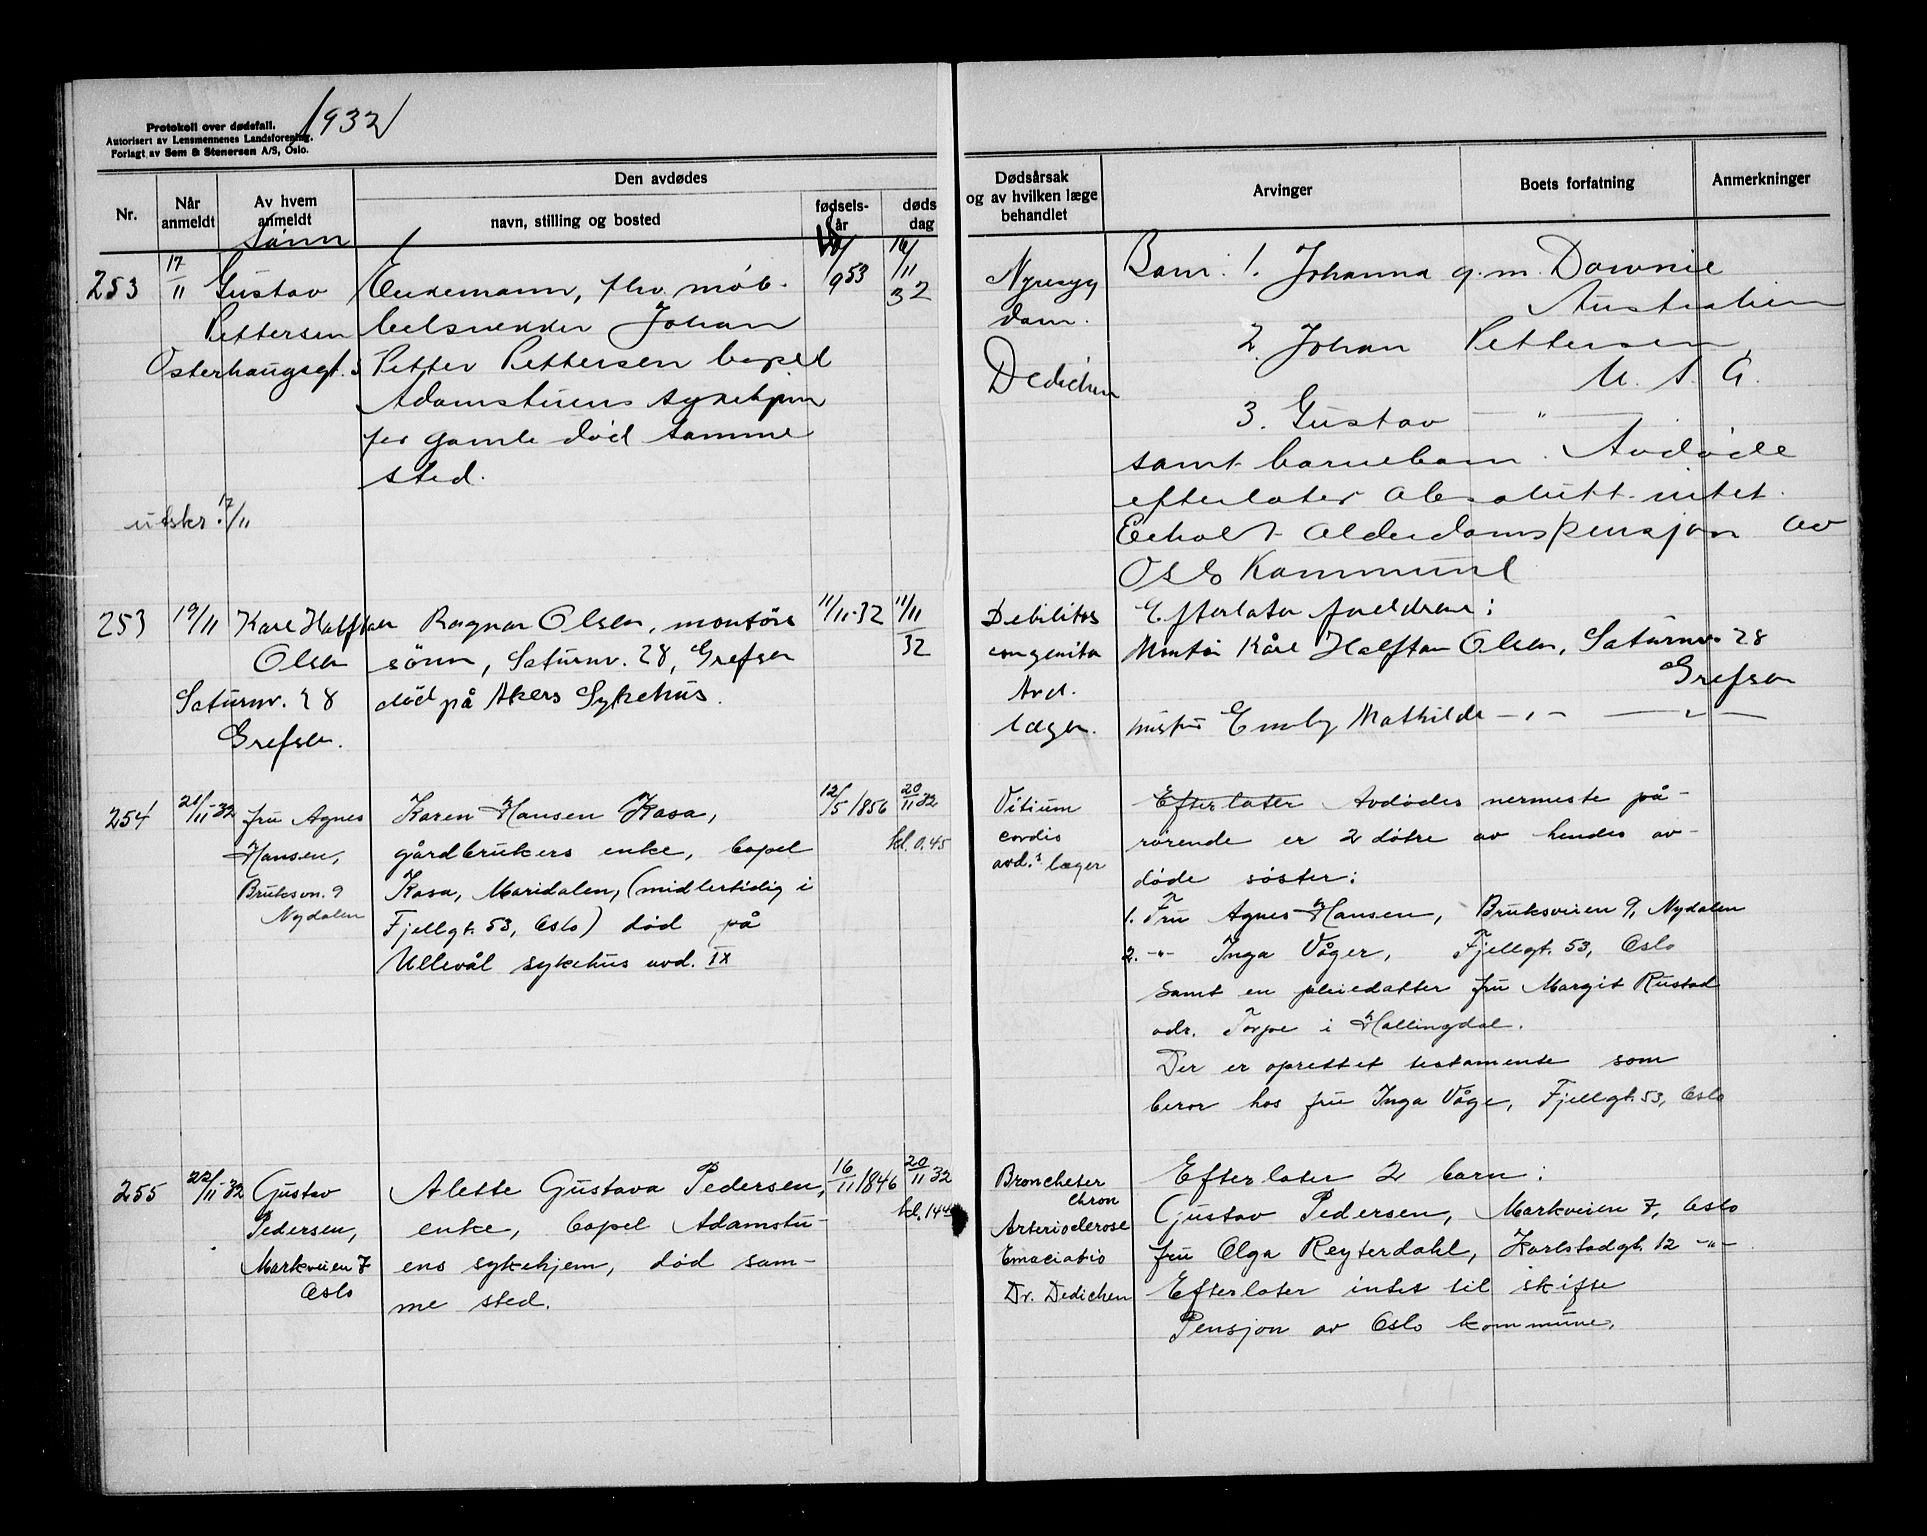 1932
Protokoll over dødsfall.
Autorisert av Lensmennenes Landsforening.
Forlagt av Sem & Stenersen A/S, Oslo.
Nr.
Når anmeldt
Av hvem anmeldt
Den avdødes
navn, stilling og bosted
fødselsår
dødsdag
Dødsårsak og av hvilken læge behandlet
Arvinger
Boets forfatning
Anmerkninger
253
17/11
sønn
Gustav
Pettersen
Osterhausgt.
Enkemann, fhv. møb-
belsnekker Johan
Petter Pettersen bopel
Adamstuens sykehjem
for gamle død samme
sted.
53
16/11
32
Nyresyg
dom.
Dedichen
Barn: 1. Johanna g.m. Downie
Australien
2. Johan Pettersen
U. S. A.
3. Gustav — " —
samt barnebarn. Avdøde
efterlater absolutt intet.
Enholt Alderdomspensjon av
Oslo Kommune
utskr. 17/11
253
19/11
Kåre Halftan
Olsen
Saturnv. 28
Grefsen.
Ragnar Olsen, montørs
sønn, Saturnv. 28, Grefsen
død på Akers Sykehus.
11/11-32
11/11
32
Debilitas
congenita
Avd.
lægen.
Efterlater foreldrene:
Montør Kåre Halftan Olsen, Saturnv. 28
Grefsen
hustru Emly Mathilde — " — — " —
254
21/11-32
fru Agnes
Hansen,
Bruksvn. 9
Nydalen
Karen Hansen Kasa,
gårdbrukers enke, bopel
Kasa, Maridalen, (midlertidig i
Fjellgt. 53, Oslo) død på
Ullevål sykehus avd. IX
12/5 1856
20/11 32
kl. 0.45
Vitium
cordis
avd.s læger
Efterlater Avdødes nermeste på-
rørende er 2 døtre av hendes av-
døde søster:
1. Fru Agnes Hansen, Bruksveien 9, Nydalen
2. -"- Inga Våger, Fjellgt. 53, Oslo
samt en pleiedatter fru Margit Rustad
adr. Torpe i Hallingdal.
Der er oprettet testamente som
beror hos fru Inga Våge, Fjellgt. 53, Oslo
255
22/11-32
Gustav
Pedersen,
Markveien 7
Oslo
Alette Gustava Pedersen,
enke, bopel Adamstu-
ens sykehjem, død sam-
me sted.
16/11 1846
20/11 32
kl. 14 45
Broncheter
chron
Arterioclerose
Emaciatio
Dr. Dedichen
Efterlater 2 barn:
Gustav Pedersen, Markveien 7, Oslo
fru Olga Reyterdahl, Karlstadgt. 12 -"-
Efterlater intet til skifte
Pensjon av Oslo kommune.